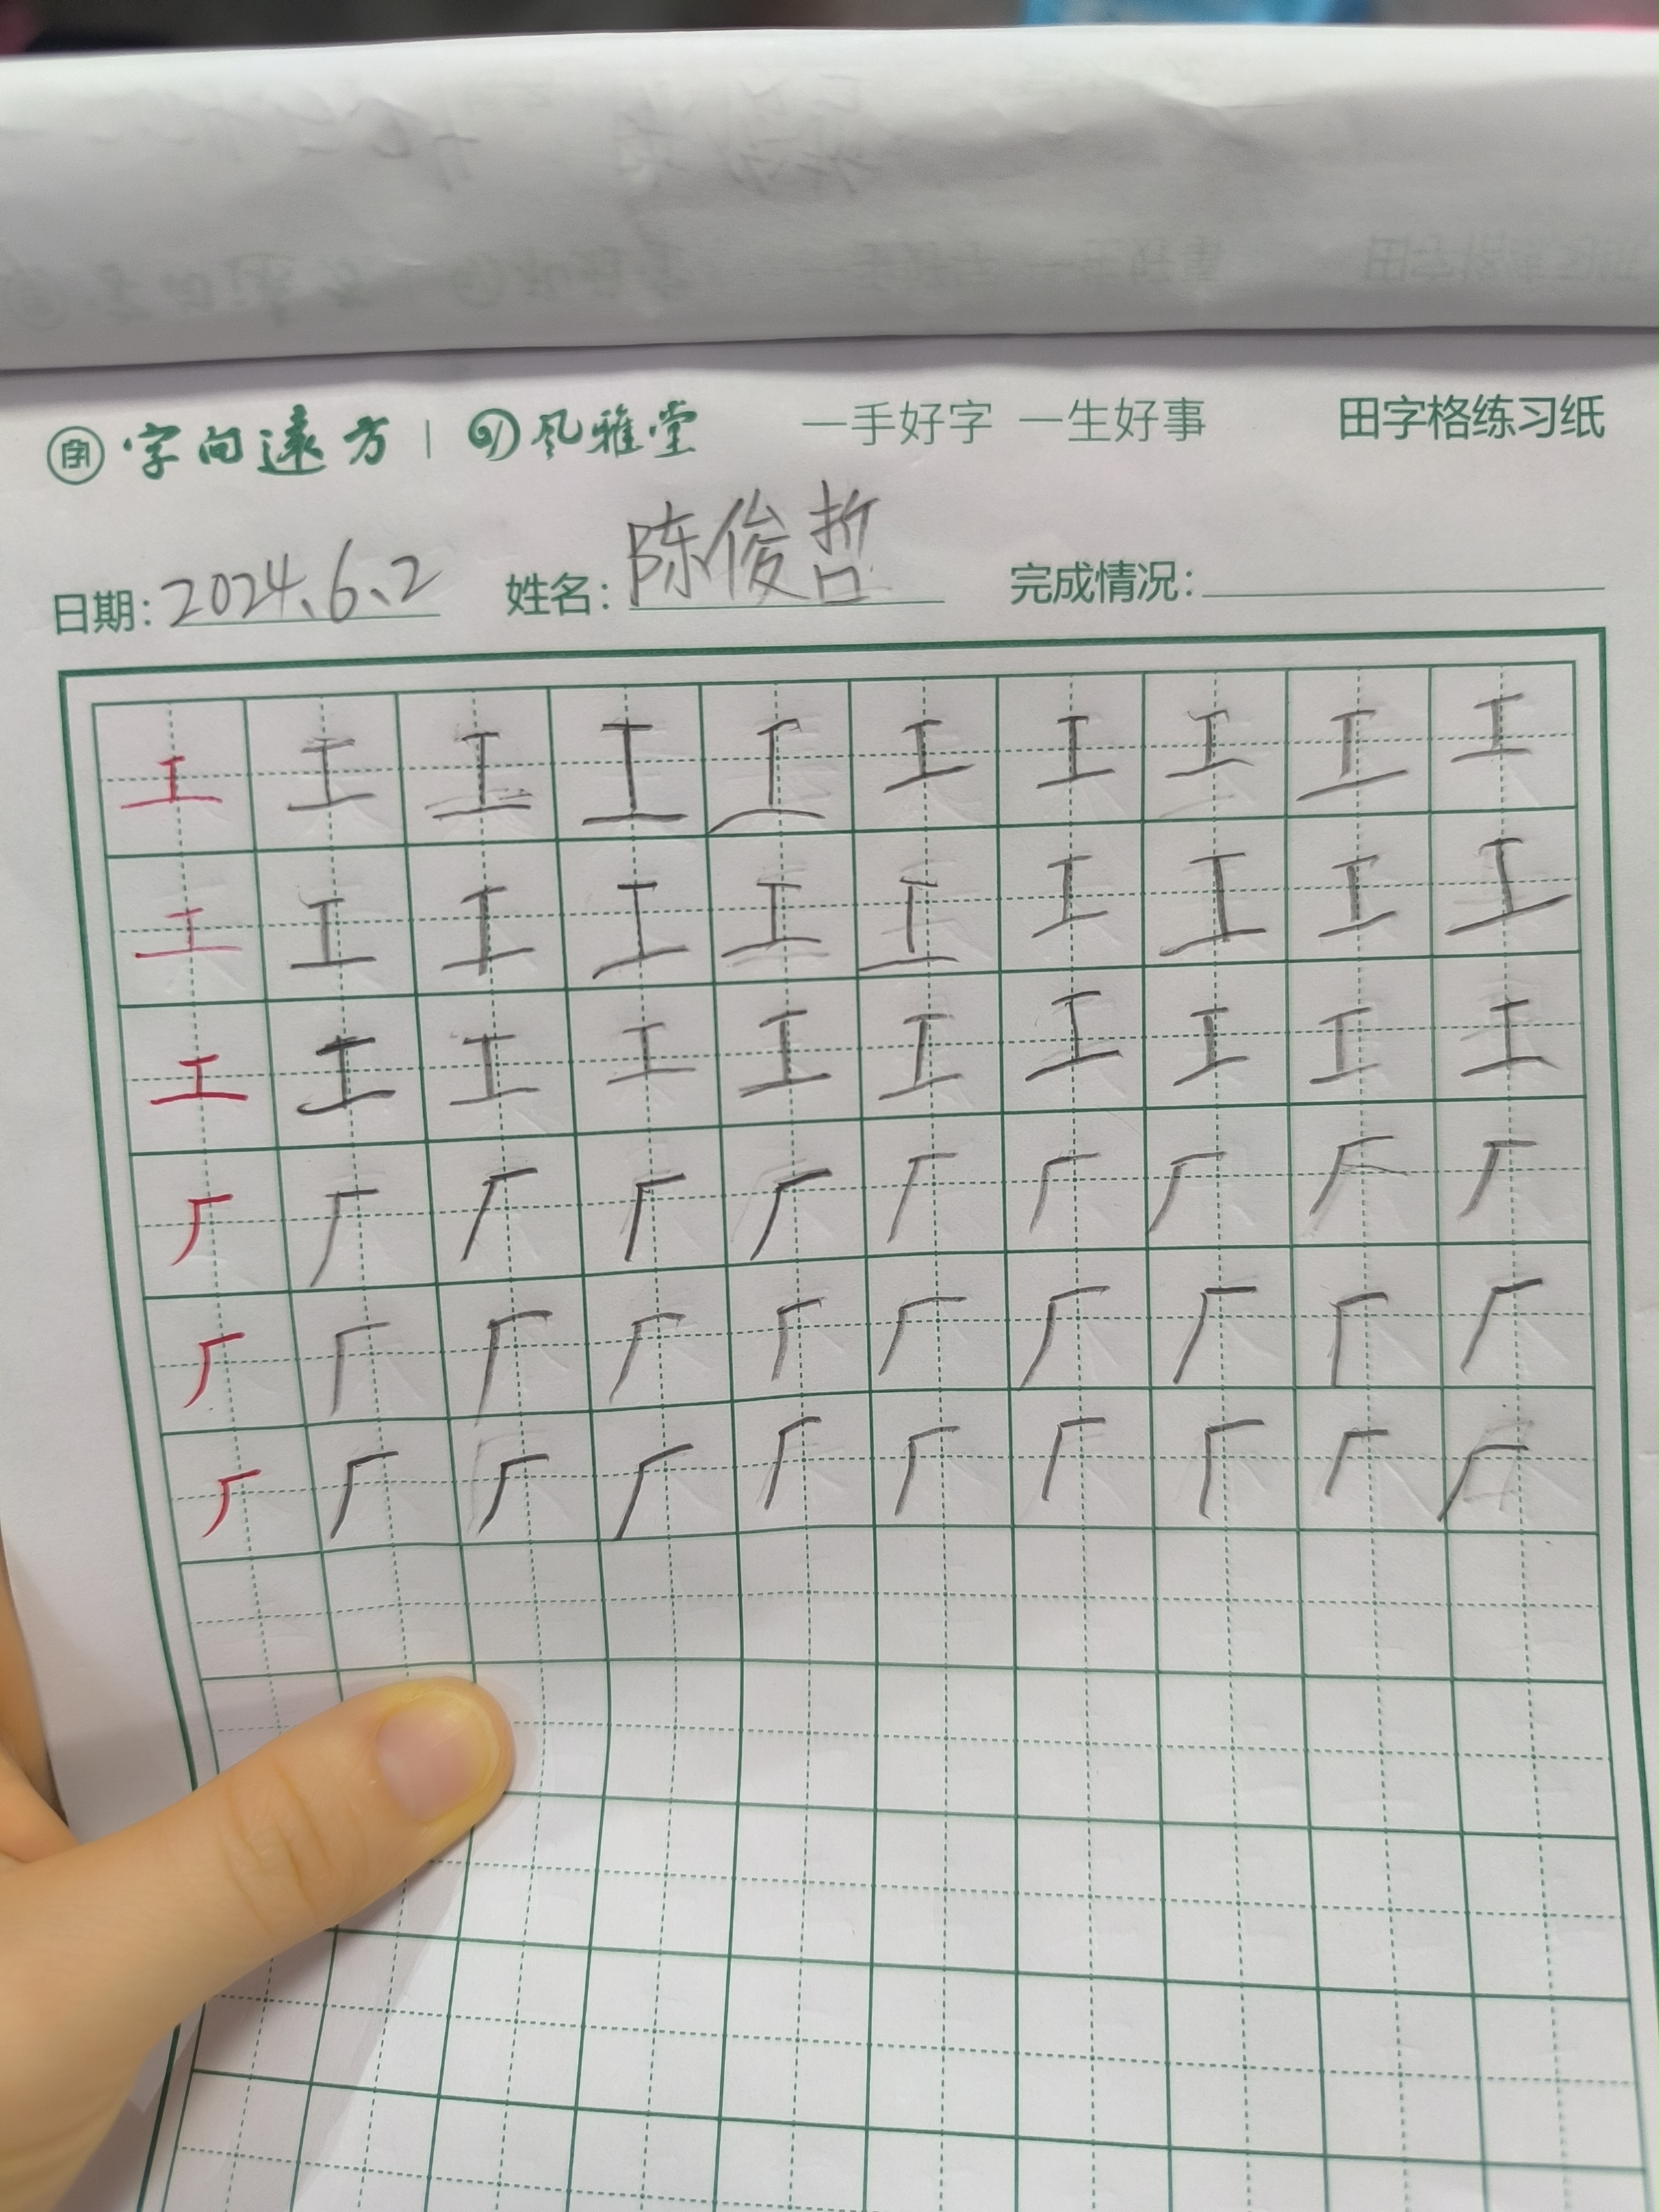 字向远方 | 风雅堂 一手好字 一生好事 田字格练习纸
日期: 2024.6.2 姓名: 陈俊哲 完成情况:
工 工 工 工 工 工 工 工 工 工
工 工 工 工 工 工 工 工 工 工
工 工 工 工 工 工 工 工 工 工
厂 厂 厂 厂 厂 厂 厂 厂 厂 厂
厂 厂 厂 厂 厂 厂 厂 厂 厂 厂
厂 厂 厂 厂 厂 厂 厂 厂 厂 厂